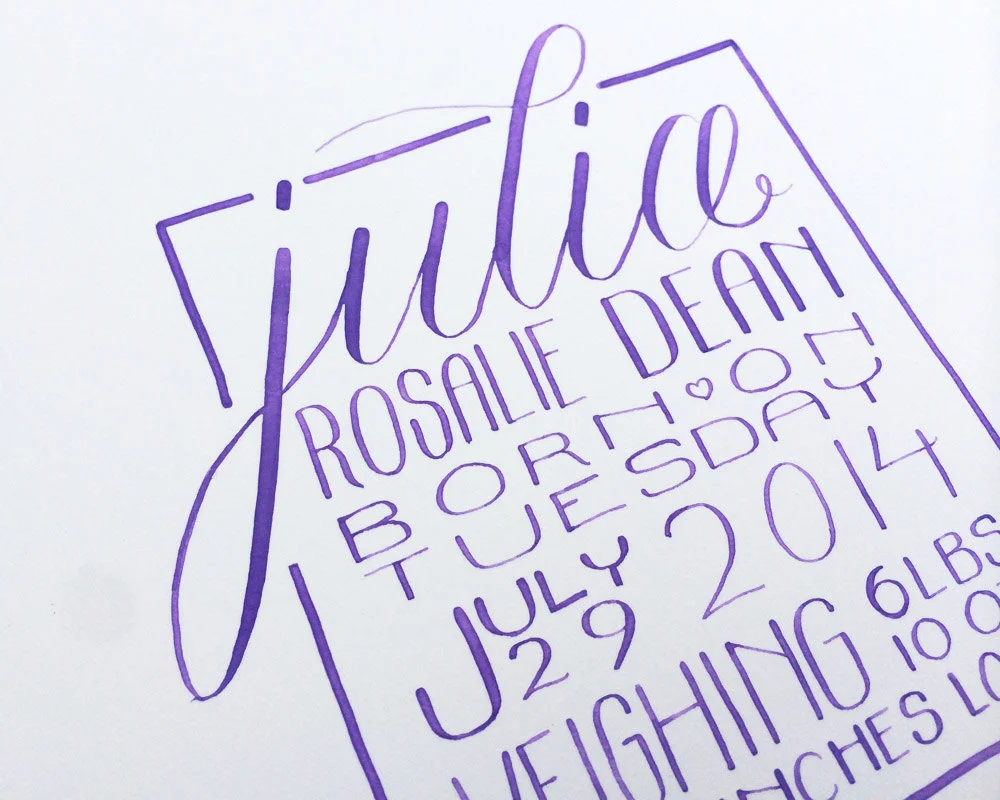 julia
ROSALIE DEAN
BORN ON
TUESDAY
JULY 29 2014
WEIGHING 6LBS
10